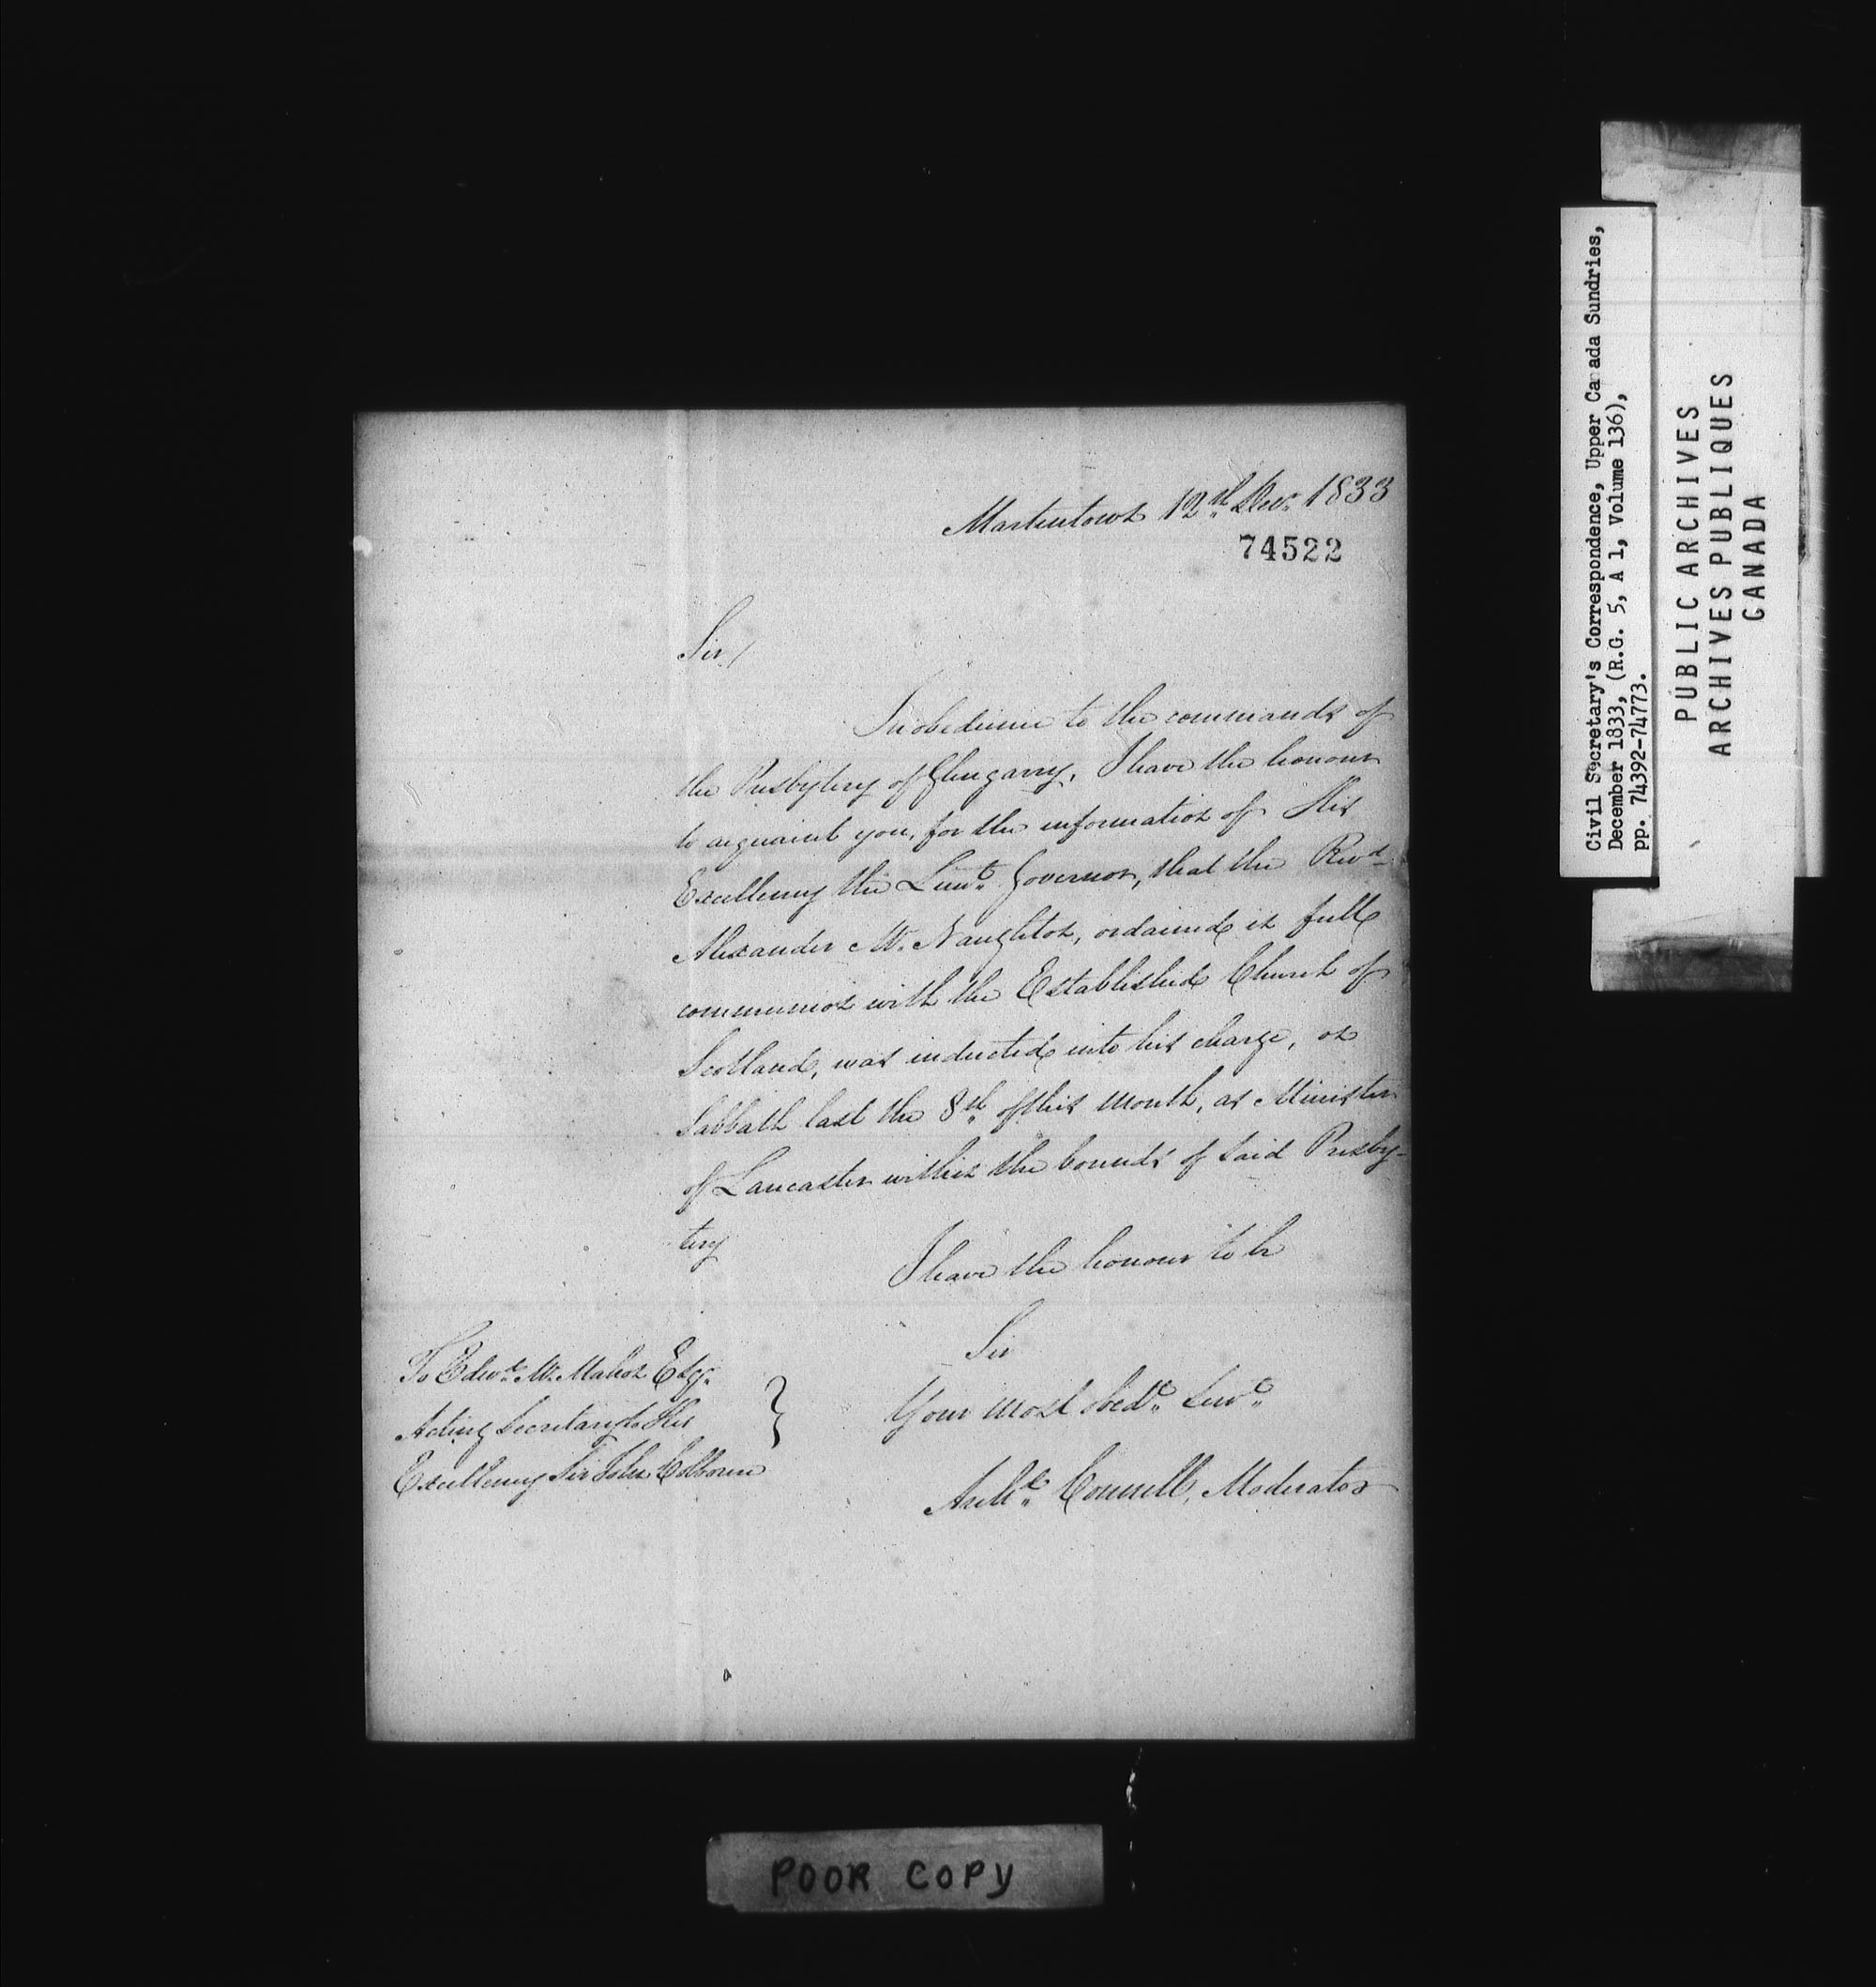 Martintown 12th Decr. 1833
74522
Sir/
In obedience to the commands of
the Presbytery of Glengarry, I have the honour
to acquaint you, for the information of His
Excellency the Lieut. Governor, that the Revd.
Alexander Mc.Naughton, ordained in full
communion with the Established Church of
Scotland, was inducted into his charge, on
Sabbath last the 8th of this month, as Minister
of Lancaster within the bounds of said Presby-
tery
I have the honour to be
Sir
Your most obedt. Servt.
Archd. Connell, Moderator
To Edwd. Mc.Mahon Esqr.
Acting Secretary to His
Excellency Sir John Colborne
POOR COPY
Civil Secretary's Correspondence, Upper Canada Sundries,
December 1833, (R.G. 5, A 1, Volume 136),
pp. 74392-74773.
PUBLIC ARCHIVES
ARCHIVES PUBLIQUES
CANADA